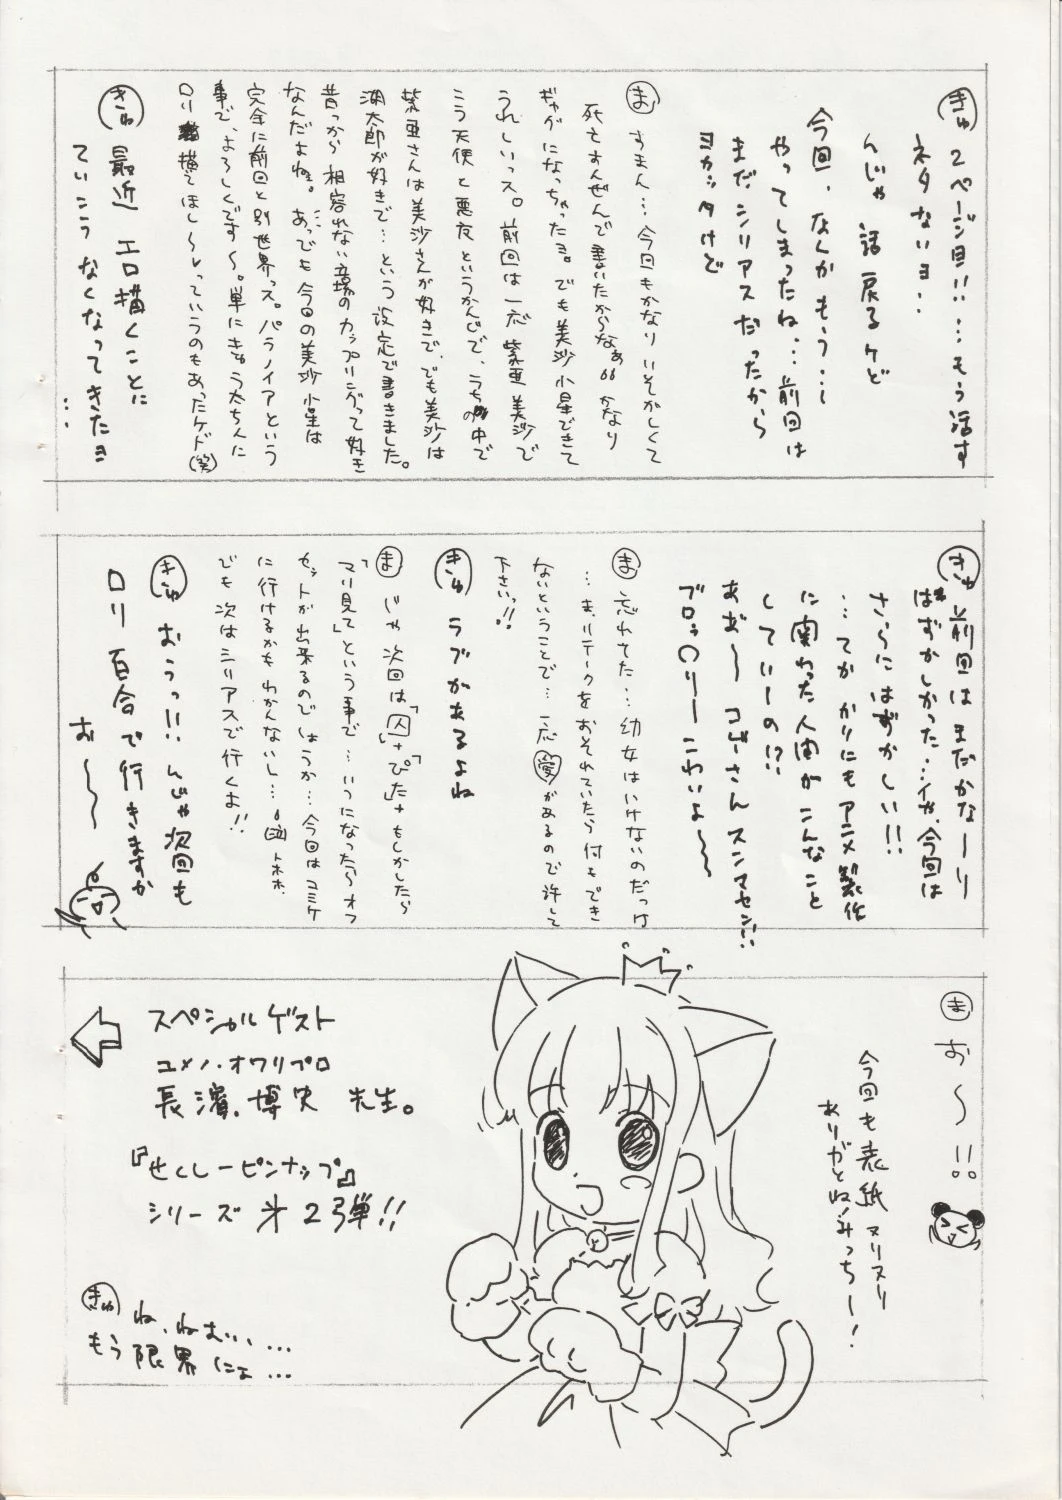 きゅ 2ページ目!!…もう話す
ネタないヨ…
んじゃ 話戻るケド
今回、なんかもう…
やってしまったね…前回は
まだシリアスだったから
ヨカッタけど
ま すまん…今回もかなりいそがしくて
死ぬすんぜんで書いたからなぁ かなり
ギャグになっちゃったヨ。でも美沙小星できて
うれしいっス。前回は一応紫亜美沙で
こう天使と悪友というかんじで、うちの中で
紫亜さんは美沙さんが好きで、でも美沙は
湖太郎が好きで…という設定で書きました。
昔っから相容れない立場のカップリングって好き
なんだよねぇ。あっでも今回の美沙小星は
完全に前回と別世界っス。パラノイアという
事で、よろしくです〜。単にきゅう太ちんに
ロリ描いてほし〜いっていうのもあったケド(笑)
きゅ 最近 エロ描くことに
ていこうなくなってきたヨ
…
きゅ 前回はまだかなーり
はずかしかった…イヤ、今回は
さらにはずかしい!!
…てか かりにもアニメ製作
に関わった人間がこんなこと
していーの!?
あぁ〜 コゲさんスンマセン!!
ブロッ〇リー こわいよ〜
ま 忘れてた…幼女はいけないのだっけ
…ま、リテークをおそれていたら何もでき
ないということで…一応愛があるので許して
下さい!!
きゅ ラブがあるよね
ま じゃ次回は「囚」+「ぴた」+もしかしたら
「マリ見て」という事で…いつになったらオフ
セットが出来るのでしょうか…今回はコミケ
に行けるかもわかんないし…(泣)トホホ
でも次はシリアスで行くよ!!
きゅ おうっ!! んじゃ次回も
ロリ百合で行きますか
お〜
ま お〜!!
今回も表紙ヌリヌリ
ありがとね!みっちー!
スペシャルゲスト
ユメノ・オワリプロ
長濱 博史 先生。
『せくしーピンナップ』
シリーズ 第2弾!!
きゅ ね、ねむい、…
もう限界にょ…